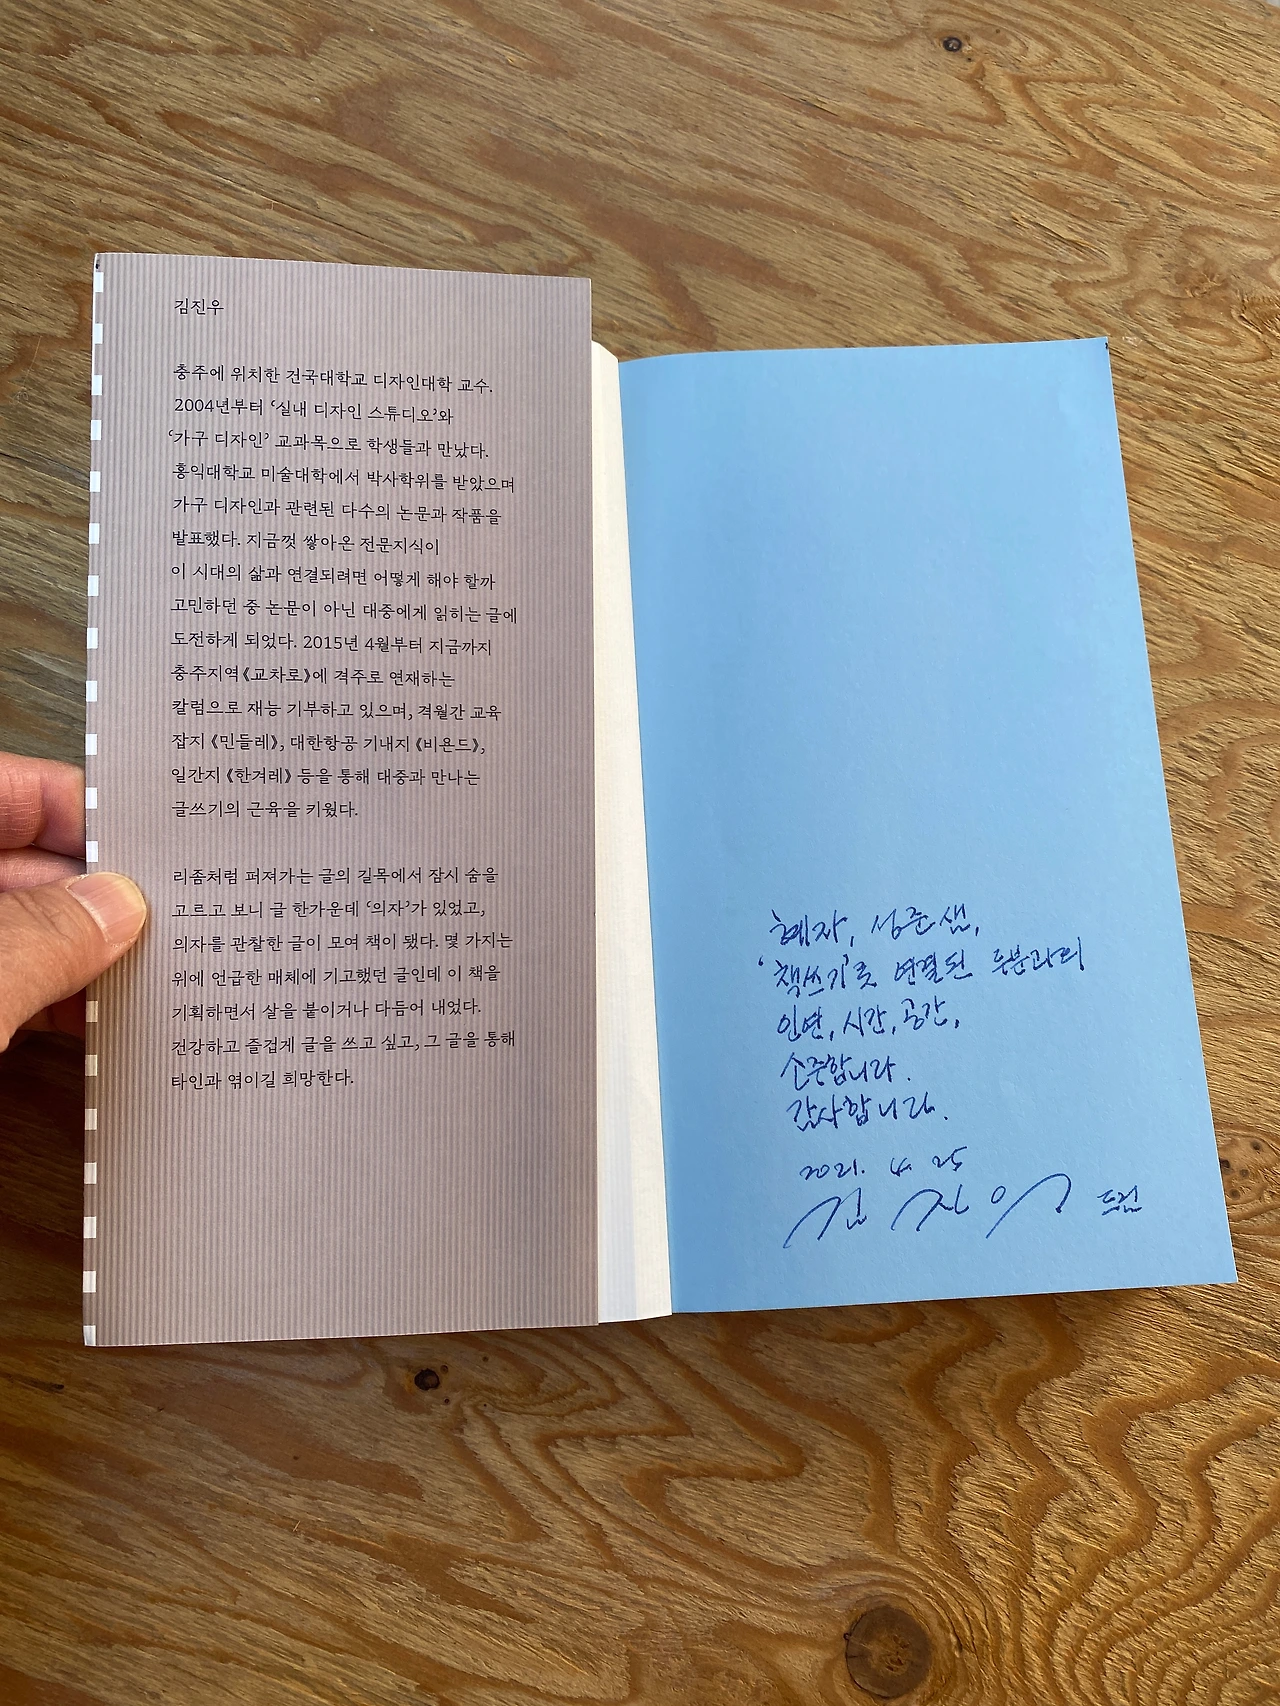 김진우
충주에 위치한 건국대학교 디자인대학 교수.
2004년부터 ‘실내 디자인 스튜디오’와
‘가구 디자인’ 교과목으로 학생들과 만났다.
홍익대학교 미술대학에서 박사학위를 받았으며
가구 디자인과 관련된 다수의 논문과 작품을
발표했다. 지금껏 쌓아온 전문지식이
이 시대의 삶과 연결되려면 어떻게 해야 할까
고민하던 중 논문이 아닌 대중에게 읽히는 글에
도전하게 되었다. 2015년 4월부터 지금까지
충주지역《교차로》에 격주로 연재하는
칼럼으로 재능 기부하고 있으며, 격월간 교육
잡지《민들레》, 대한항공 기내지《비욘드》,
일간지《한겨레》 등을 통해 대중과 만나는
글쓰기의 근육을 키웠다.
리좀처럼 퍼져가는 글의 길목에서 잠시 숨을
고르고 보니 글 한가운데 ‘의자’가 있었고,
의자를 관찰한 글이 모여 책이 됐다. 몇 가지는
위에 언급한 매체에 기고했던 글인데 이 책을
기획하면서 살을 붙이거나 다듬어 내었다.
건강하고 즐겁게 글을 쓰고 싶고, 그 글을 통해
타인과 엮이길 희망한다.
혜자, 성준샘,
‘책쓰기’로 연결된 두분과의
인연, 시간, 공간,
소중합니다.
감사합니다.
2021. 4. 25
김진우 드림